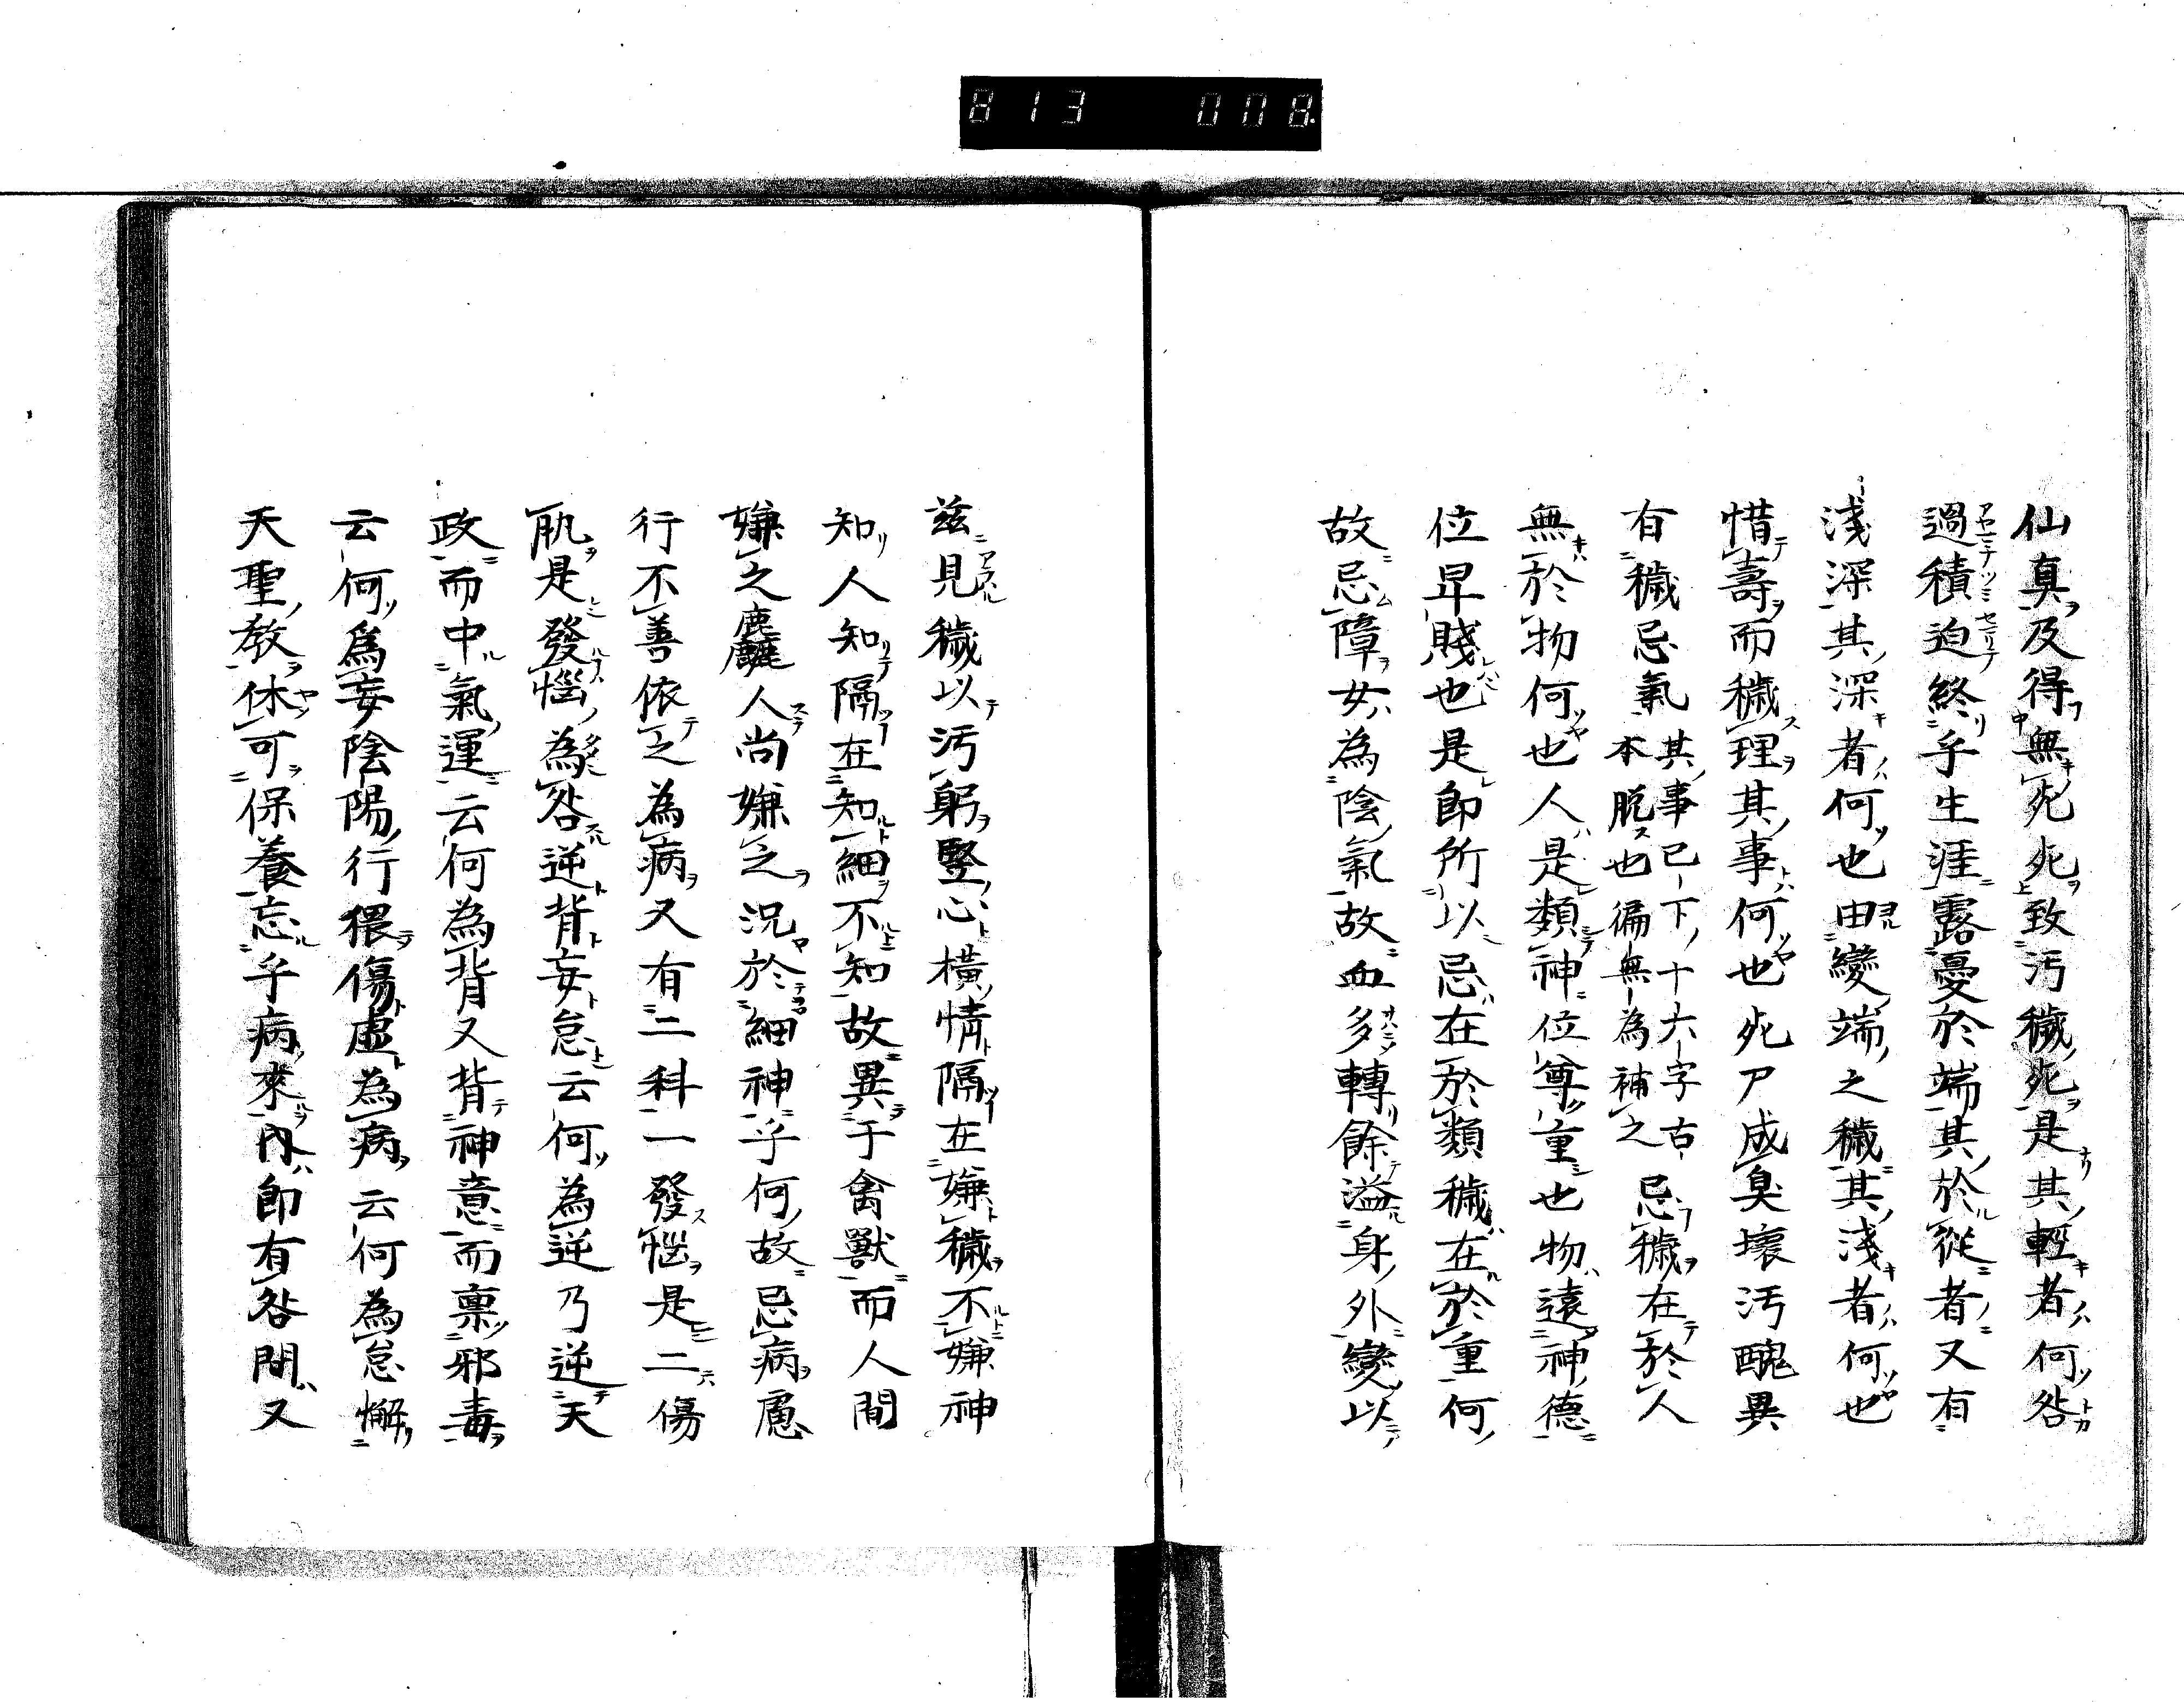 813 008
仙真及得無死死致汚穢死是其輕者何咎
過積迫終乎生涯露憂於端其於從者又有
淺深其深者何也由變端之穢其淺者何也
惜壽而穢理其事何也死尸成臭壞汚醜異
有穢忌氣其事已下十六字古本脱也徧無為補之忌穢在於人
無於物何也人是類神位尊重也物遠神德
位卑賤也是即所以忌在於類穢在於重何
故忌障女為陰氣故血多轉餘溢身外變以
茲見穢以汚躬竪心橫情隔在嫌穢不嫌神
知人知隔在知細不知故異于禽獸而人間
嫌之麤人尚嫌之況於細神乎何故忌病慮
行不善依之為病又有二科一發惱是二傷
肌是發惱為咎逆背妄怠云何為逆乃逆天
政而中氣運云何為背又背神意而稟邪毒
云何為妄陰陽行猥傷虛為病云何為怠懈
天聖教休可保養忘乎病來內即有咎間又